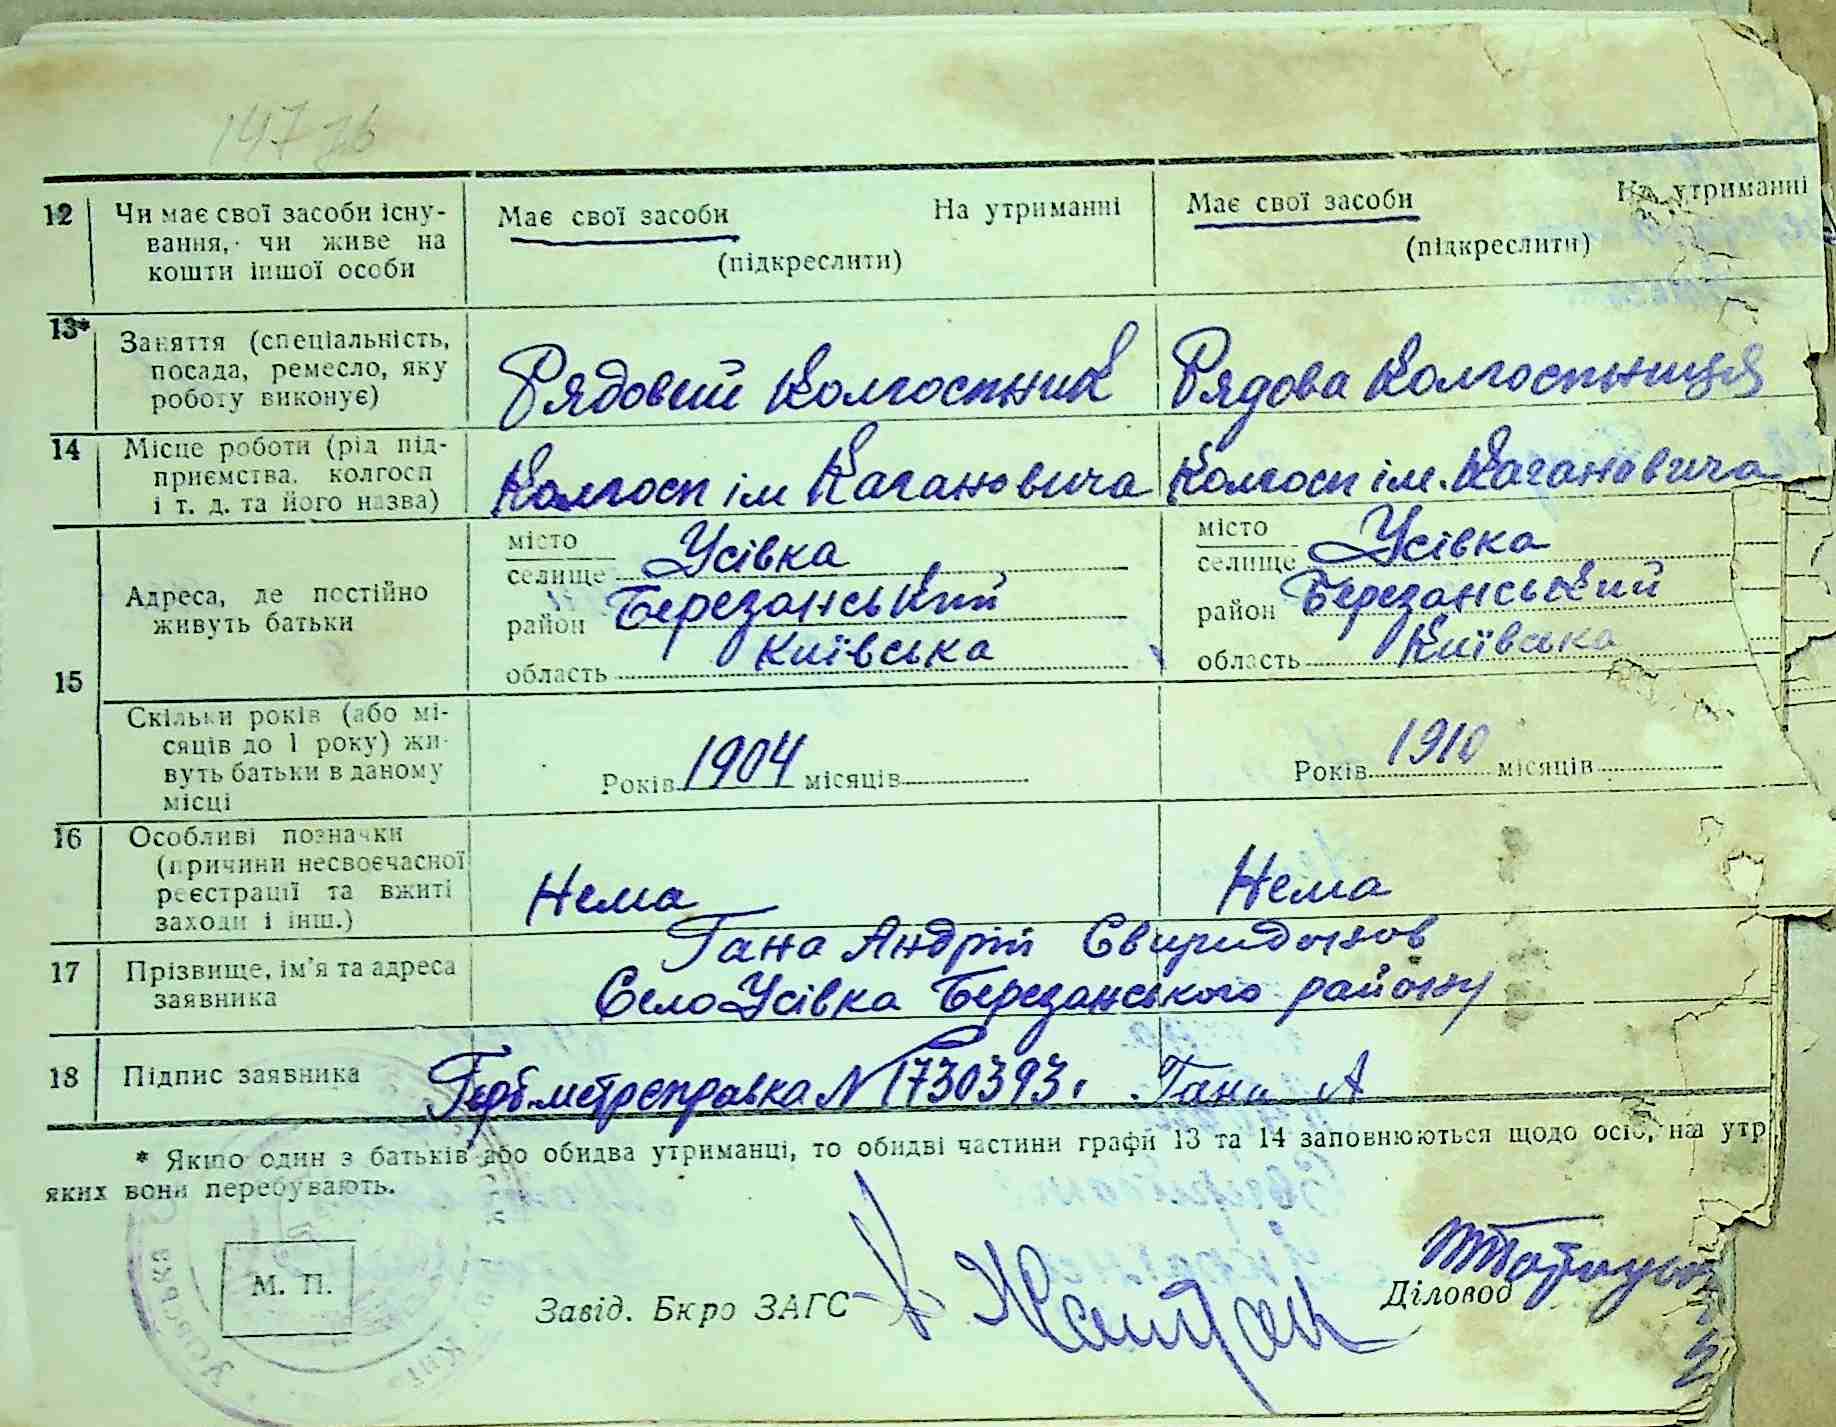 147 зв
12 Чи має свої засоби існу-
вання, чи живе на
кошти іншої особи
Має свої засоби На утриманні
(підкреслити)
Має свої засоби На утриманні
(підкреслити)
13* Заняття (спеціальність,
посада, ремесло, яку
роботу виконує)
Рядовий Колгоспник
Рядова Колгоспниця
14 Місце роботи (рід під-
приємства, колгосп
і т. д. та його назва)
Колгосп ім Кагановича
Колгосп ім. Кагановича
15 Адреса, де постійно
живуть батьки
місто
селище Усівка
район Березанський
область Київська
місто
селище Усівка
район Березанський
область Київська
Скільки років (або мі-
сяців до 1 року) жи-
вуть батьки в даному
місці
Років 1904 місяців
Років 1910 місяців
16 Особливі позначки
(причини несвоєчасної
реєстрації та вжиті
заходи і інш.)
Нема
Нема
17 Прізвище, ім'я та адреса
заявника
Гана Андрій Свиридонов
Село Усівка Березанського району
18 Підпис заявника
Герб.метрсправка N 1730393. Гана А
* Якщо один з батьків або обидва утриманці, то обидві частини графи 13 та 14 заповнюються щодо осіб, на утр
яких вони перебувають.
М. П.
Завід. Бюро ЗАГС
Діловод